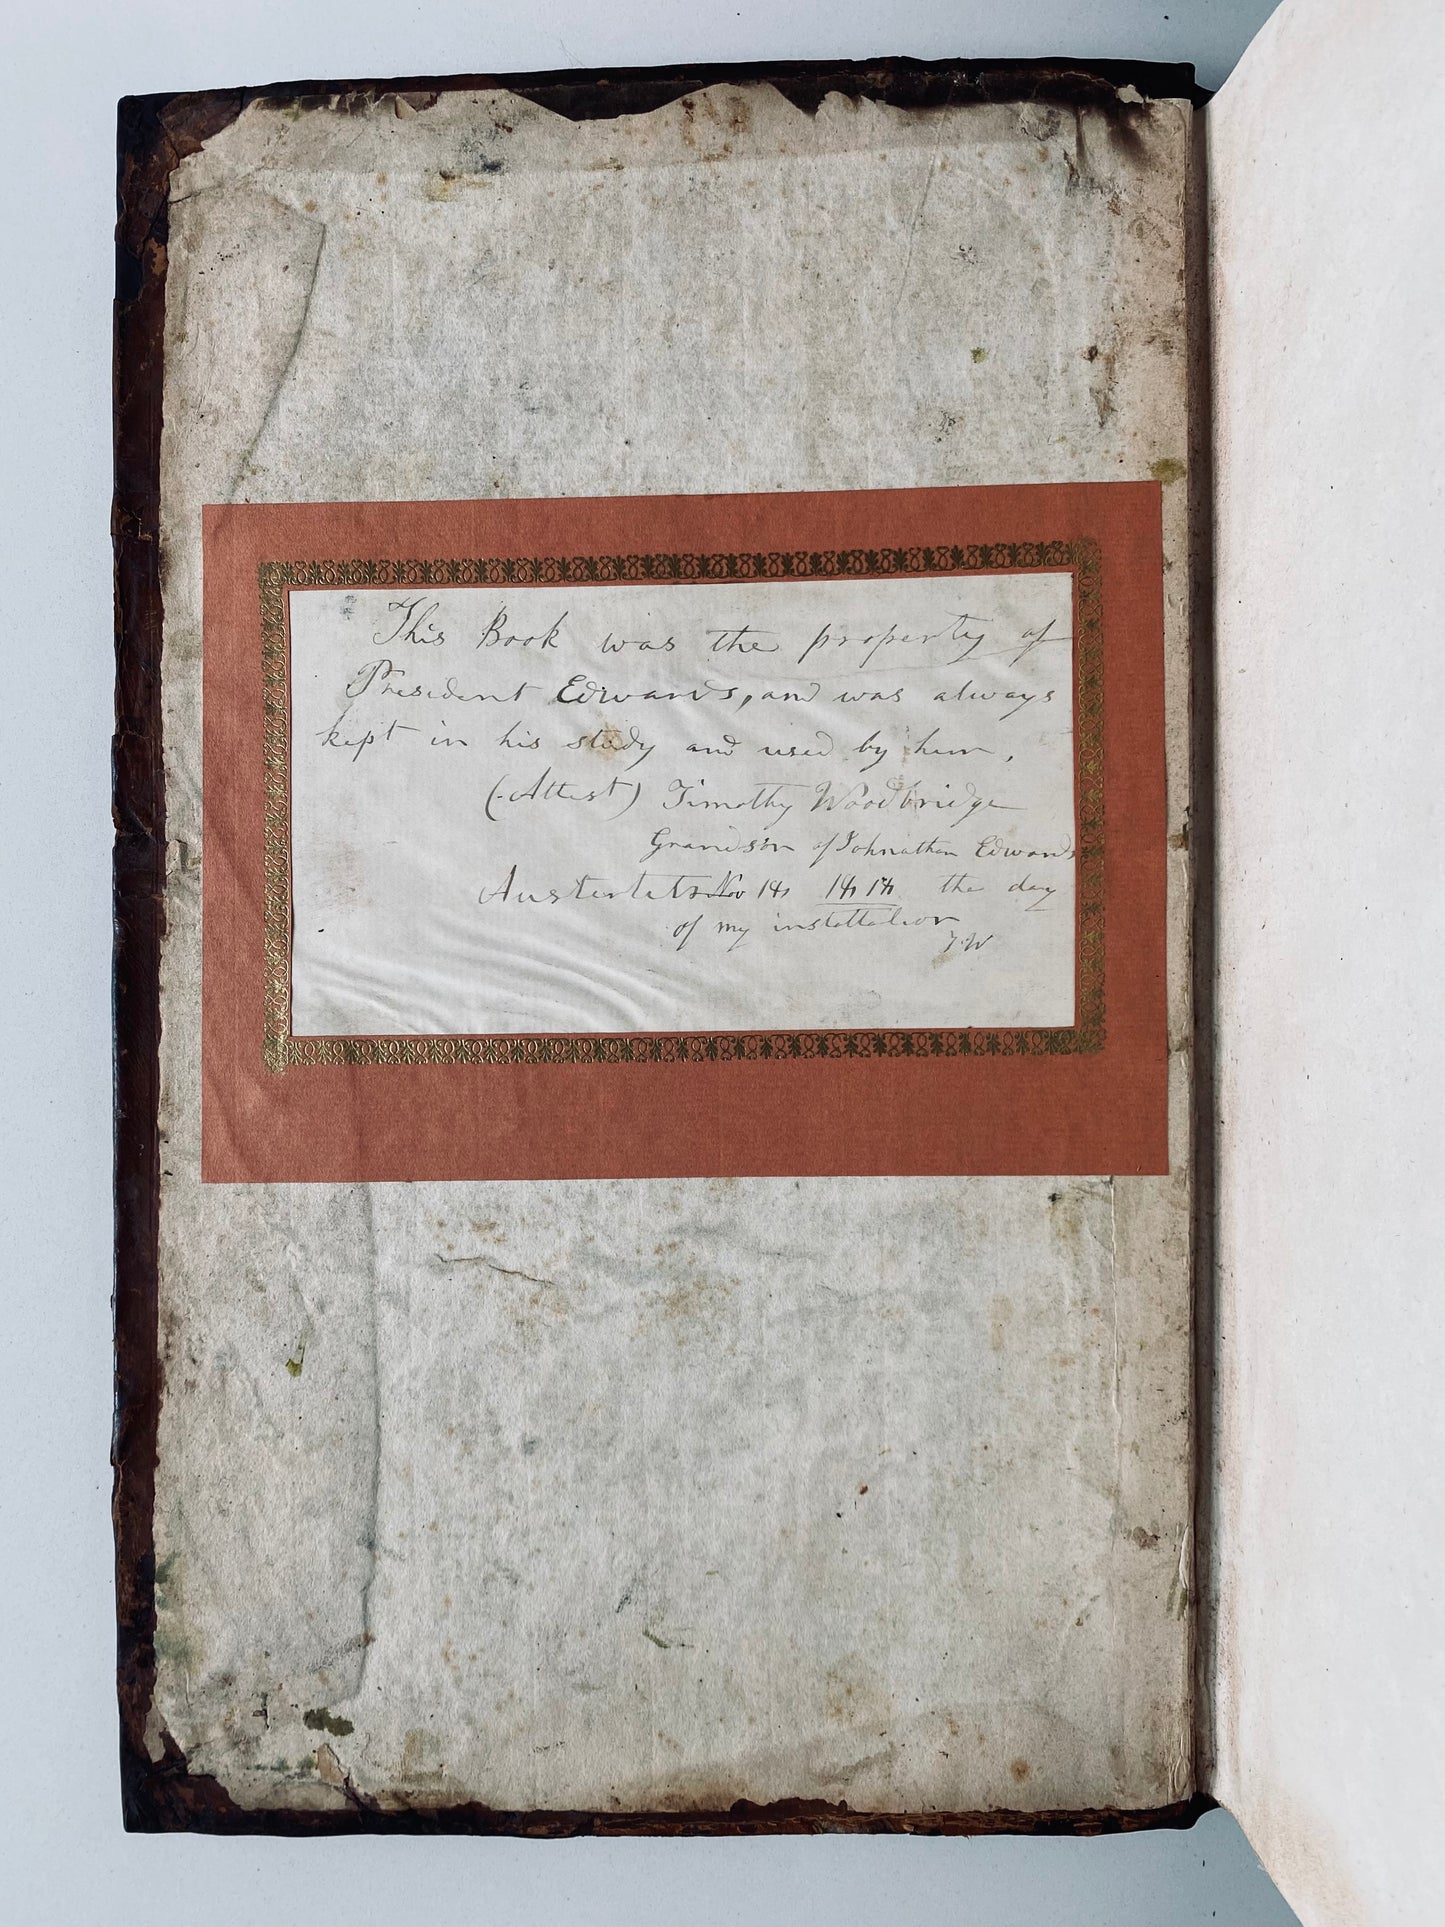 This Book was the property of
President Edwards, and was always
kept in his study and used by him,
(Attest) Timothy Woodbridge
Grandson of Johnathan Edwards
Nov the day
of my installation
T. W